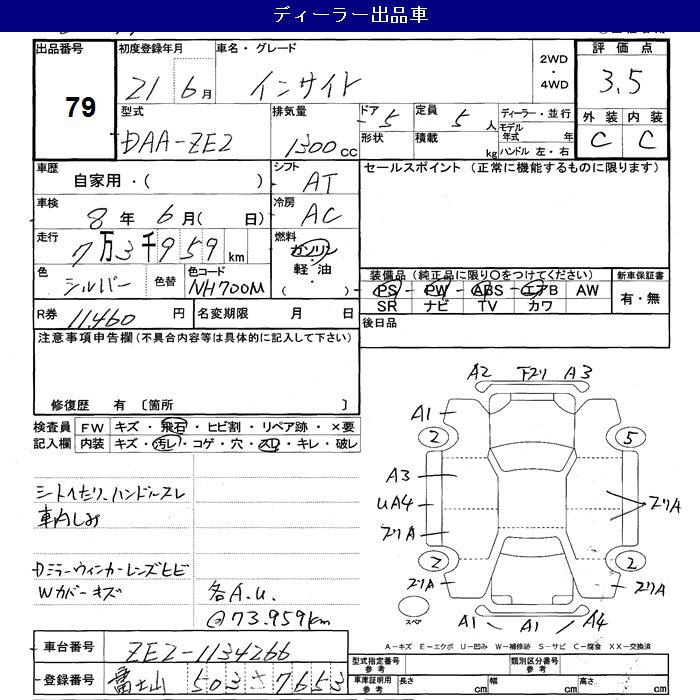 ディーラー出品車
出品番号 初度登録年月 車名・グレード 評価点
79
21 6月 インサイト 2WD・4WD 3.5
型式 排気量 ドア 5 定員 5人 ディーラー・並行 外装 内装
DAA-ZE2 1300cc 形状 積載 kg モデル年式 年 C C
ハンドル 左・右
車歴 シフト セールスポイント (正常に機能するものに限ります)
自家用・( ) AT
車検 冷房
8年 6月( 日) AC
走行 燃料
7万3千959km ガソリン
色 色替 色コード 軽油
シルバー NH700M ( )
装備品 (純正品に限り○をつけてください) 新車保証書
PS PW ABS エアB AW 有・無
SR ナビ TV カワ
R券 11,460円 名変期限 月 日 後日品
注意事項申告欄(不具合内容等は具体的に記入して下さい)
修復歴 有 〔箇所 〕
検査員 FW キズ・飛石・ヒビ割・リペア跡・×要
記入欄 内装 キズ・汚レ・コゲ・穴・スレ・キレ・破レ
シートへたり、ハンドルスレ
車内しみ
Dミラーウィンカーレンズヒビ
Wカバーキズ
各A.U.
@73.959km
A2 下マリ A3
A1
2 5
A3
UA4 マリA
マリA
2 2
マリA マリA
スペア
A1 A1 A4
A-キズ E-エクボ U-凹み W-補修跡 S-サビ C-腐食 XX-交換済
車台番号 ZE2-1134266
登録番号 富士山 503 さ 7653
型式指定番号 参考 類別区分番号 参考
車庫証明用 参考 長さ cm 幅 cm 高さ cm